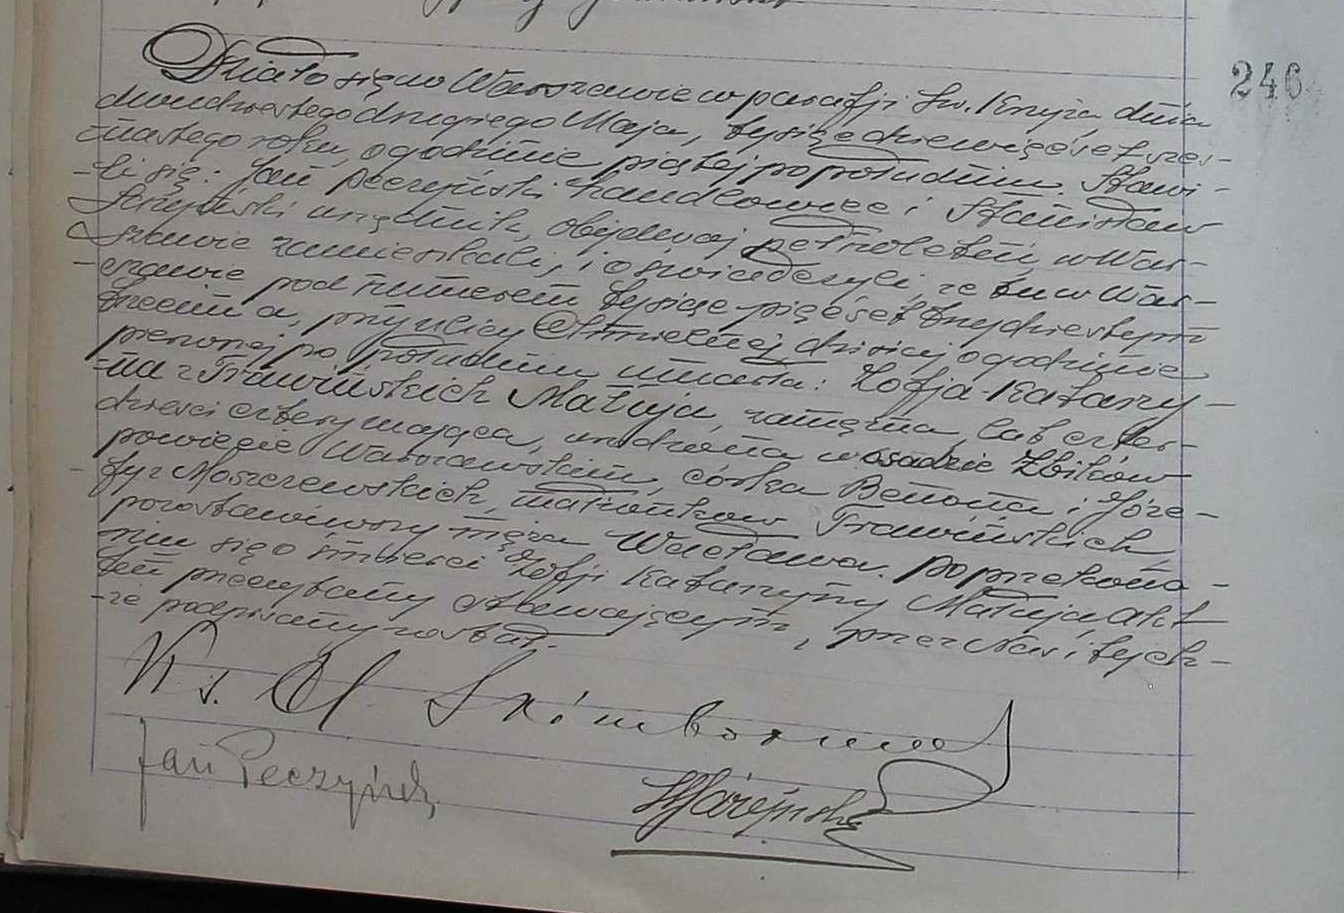 246
Działo się w Warszawie w parafji Św. Krzyża dnia
dwudziestego drugiego Maja, tysiąc dziewięćset szes-
nastego roku, o godzinie piątej po południu. Stawi-
li się: Jan Peczyński handlowiec i Stanisław
urzędnik, obydwaj pełnoletni, w War-
szawie zamieszkali, i oświadczyli, że tu w War-
szawie pod numerem tysiąc pięćset trzydziestym
trzecim a, przy ulicy Chmielnej dzisiaj o godzinie
pierwszej po południu umarła: Zofja-Katarzy-
na z Trawińskich Matuja, zamężna, lat czter-
dzieści cztery mająca, urodzona w osadzie Żbików
powiecie Warszawskim, córka Benona i Józe-
fy z Moszczewskich, małżonków Trawińskich,
pozostawiwszy męża Wacława. Po przekona-
niu się o śmierci Zofji Katarzyny Matuja akt
ten przeczytany stawającym, przez Nas i tych-
że podpisany został.
Ks.
Jan Peczyński